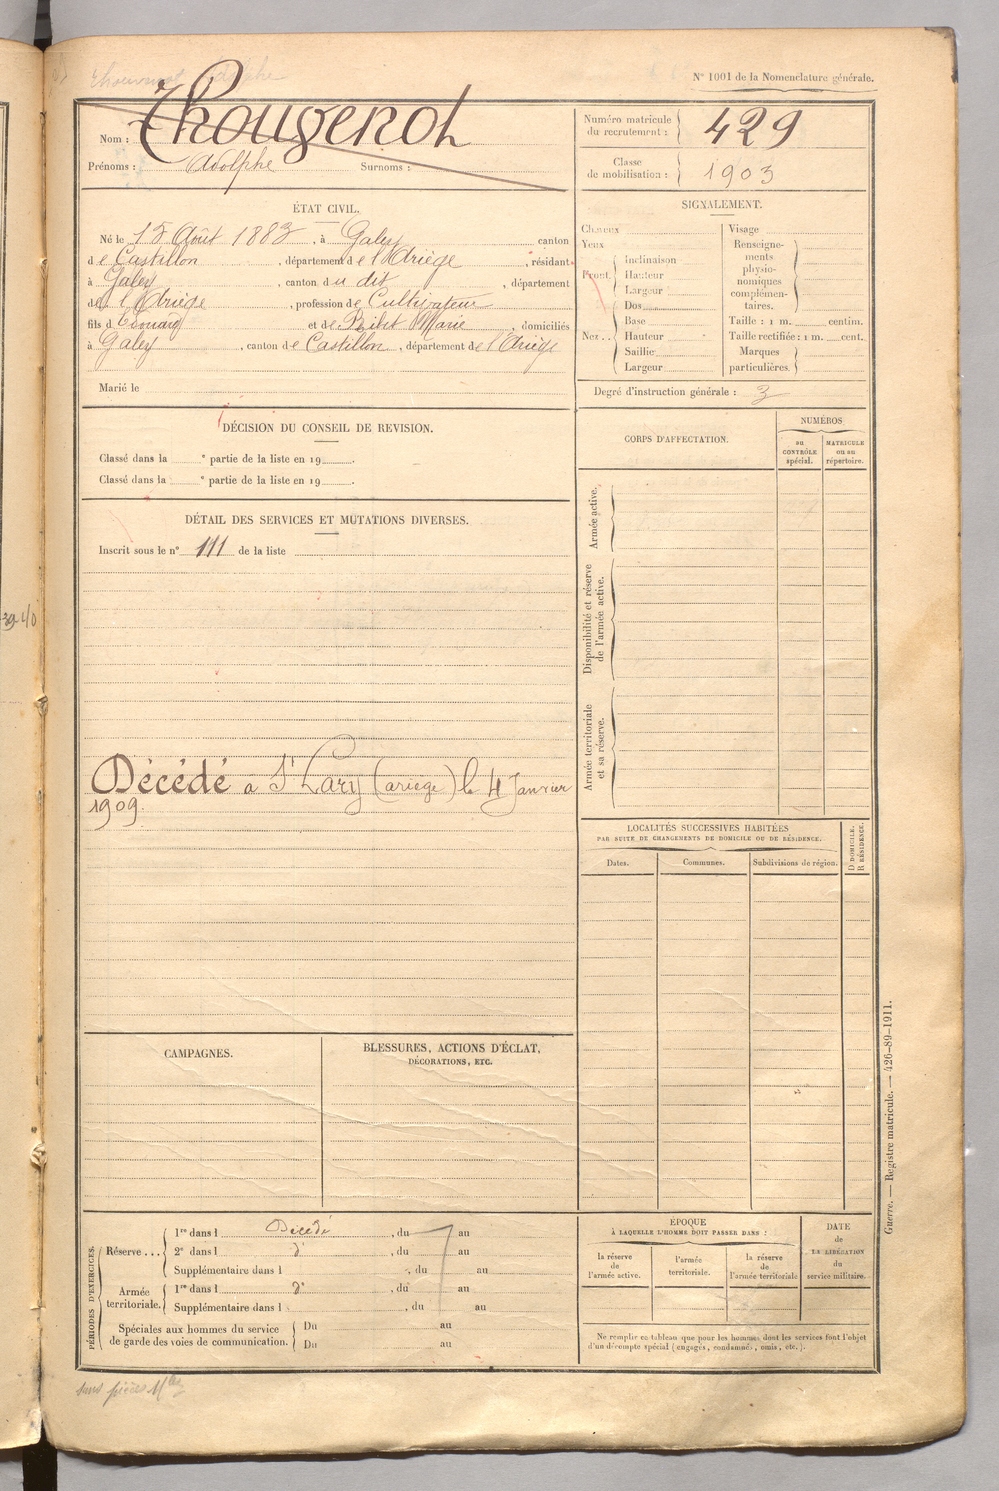 Thouvenot Adolphe
N° 1001 de la Nomenclature générale.
Nom : Thougenot
Prénoms : Adolphe Surnoms :
Numéro matricule du recrutement : 429
Classe de mobilisation : 1903
ÉTAT CIVIL.
Né le 15 Août 1883, à Galey canton
de Castillon, département de l'Ariège, résidant
à Galey, canton du dit, département
de l'Ariège, profession de Cultivateur
fils d'Edouard et de Ribet Marie, domiciliés
à Galey, canton de Castillon, département de l'Ariège
Marié le
SIGNALEMENT.
Cheveux
Yeux
Front. Inclinaison
Hauteur
Largeur
Nez.. Dos
Base
Hauteur
Saillie
Largeur
Visage
Renseigne-
ments
physio-
nomiques
complémen-
taires.
Taille : 1 m. centim.
Taille rectifiée : 1 m. cent.
Marques
particulières.
Degré d'instruction générale : 3
DÉCISION DU CONSEIL DE REVISION.
Classé dans la e partie de la liste en 19 .
Classé dans la e partie de la liste en 19 .
DÉTAIL DES SERVICES ET MUTATIONS DIVERSES.
Inscrit sous le n° 111 de la liste
39 40
Décédé à St Lary (ariège) le 4 Janvier
1909.
CORPS D'AFFECTATION.
NUMÉROS
au
CONTRÔLE
spécial.
MATRICULE
ou au
répertoire.
Armée active.
Disponibilité et réserve
de l'armée active.
Armée territoriale
et sa réserve.
LOCALITÉS SUCCESSIVES HABITÉES
PAR SUITE DE CHANGEMENTS DE DOMICILE OU DE RÉSIDENCE.
Dates.
Communes.
Subdivisions de région.
D DOMICILE.
R RÉSIDENCE.
CAMPAGNES.
BLESSURES, ACTIONS D'ÉCLAT,
DÉCORATIONS, ETC.
PÉRIODES D'EXERCICES.
Réserve ... 1re dans l Décédé, du au
2e dans l do, du au
Supplémentaire dans l , du au
Armée territoriale. 1re dans l do, du au
Supplémentaire dans l , du au
Spéciales aux hommes du service Du au
de garde des voies de communication. Du au
ÉPOQUE
À LAQUELLE L'HOMME DOIT PASSER DANS :
la réserve
de
l'armée active.
l'armée
territoriale.
la réserve
de
l'armée territoriale
DATE
de
LA LIBÉRATION
du
service militaire.
Ne remplir ce tableau que pour les hommes dont les services font l'objet
d'un décompte spécial (engagés, condamnés, omis, etc.).
Guerre. — Registre matricule. — 426-89-1911.
sans pièces Mles